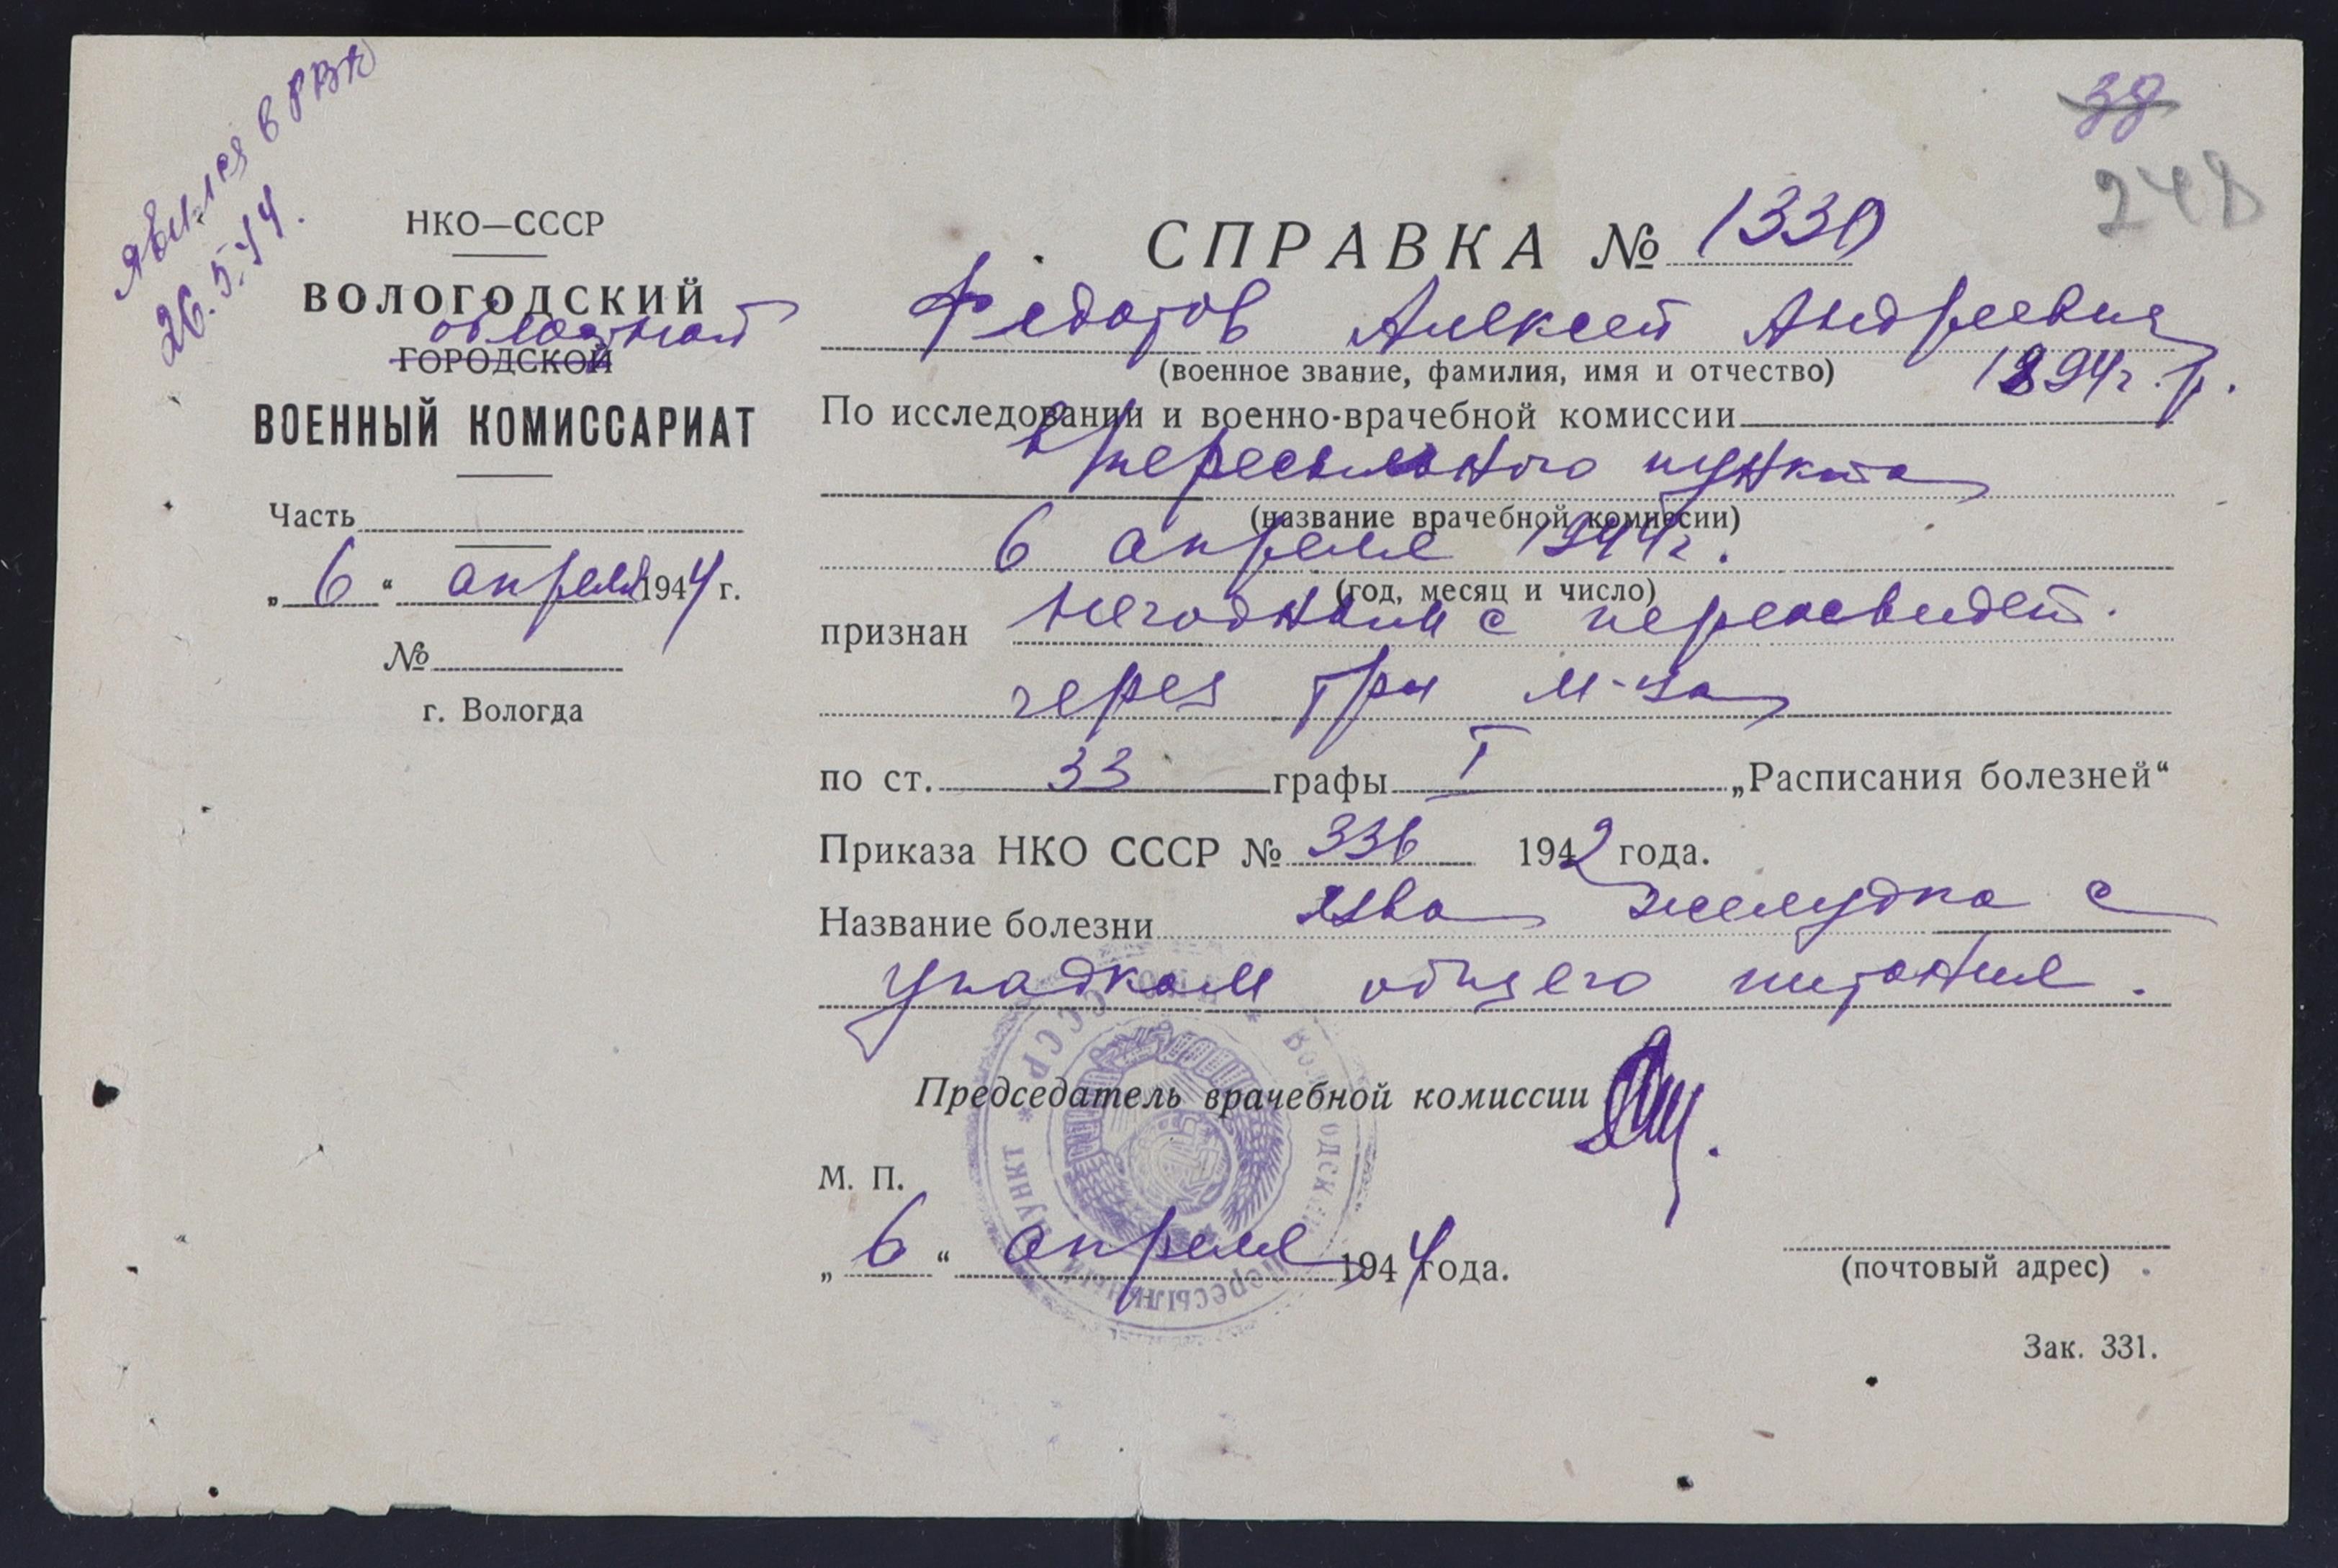 явился в РВК
26.5.44.
38
248
НКО—СССР
ВОЛОГОДСКИЙ
областной
ГОРОДСКОЙ
ВОЕННЫЙ КОМИССАРИАТ
Часть
„ 6 “ апреля 1944 г.
№
г. Вологда
СПРАВКА № 1330
Федотов Алексей Андреевич
(военное звание, фамилия, имя и отчество) 1894 г. р.
По исследовании и военно-врачебной комиссии
В/пересыльного пункта
(название врачебной комиссии)
6 апреля 1944 г.
(год, месяц и число)
признан негодным с переосвидет.
через три м-ца
по ст. 33 графы I „Расписания болезней“
Приказа НКО СССР № 336 1942 года.
Название болезни язва желудка с
упадком общего питания.
Председатель врачебной комиссии
М. П.
„ 6 “ апреля 1944 года.
(почтовый адрес)
Зак. 331.
НКО СССР * Вологодский пересыльный пункт *